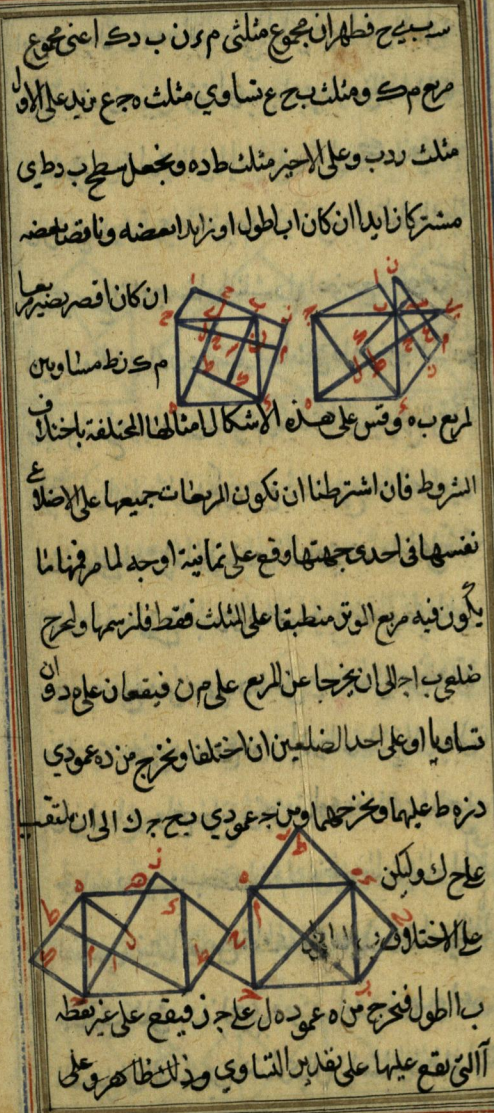 فظهر ان مجموع مثلثى م ر ن ب د ك اعنى مجموع
مربع م ك ومثلث ب ح ع تساوي مثلث ه ج ع نزيد على الاول
مثلث ر د ب وعلى الاخير مثلث ط د ه ونجعل سطح ب د ط ي
مشتركا زايدا ان كان ا ب اطول او زايدا بعضه وناقصا بعضه
ان كان اقصر يصير مربعا
م ك ن ط مساويين
لمربع ب ه وقس على هذه الاشكال امثالها المختلفة باختلاف
الشروط فان اشترطنا ان تكون المربعات جميعها على الاضلاع
نفسها فى احدى جهتها وقع على ثمانية اوجه لما مر فمنها ما
يكون فيه مربع الوتر منطبقا على المثلث فقط فلنرسمها ولنخرج
ضلعى ب ا ج ا الى ان يخرجا عن المربع على م ن فيقعان على د ه ان
تساويا او على احد الضلعين ان اختلفا ونخرج من د ه عمودي
د ز ه ط عليهما ونخرجهما ومن ج عمودي ب ح ج ك الى ان يلتقيا
على ح ك وليكن
على الاختلاف
ب ا اطول فنخرج من ه عمود ه ل على ج ز فيقع على غير نقطة
ا التى يقع عليها على تقدير التساوي وذلك ظاهر وعلى